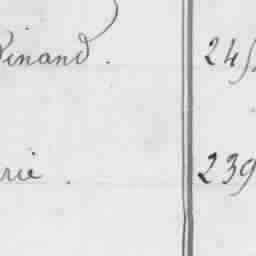 dinand. 245
rie. 239